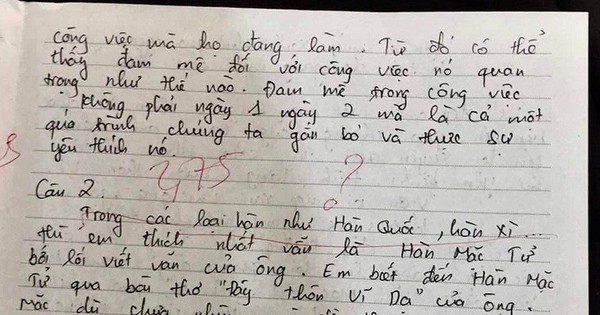 công việc mà họ đang làm. Từ đó có thể
thấy đam mê đối với công việc nó quan
trọng như thế nào. Đam mê trong công việc
không phải ngày 1 ngày 2 mà là cả một
quá trình chúng ta gắn bó và thực sự
yêu thích nó.
2,75 ?
Câu 2.
Trong các loại hàn như Hàn Quốc, hàn xì...
thì em thích nhất vẫn là Hàn Mặc Tử
bởi lối viết văn của ông. Em biết đến Hàn Mặc
Tử qua bài thơ "Đây thôn Vĩ Dạ" của ông.
Mặc dù chưa